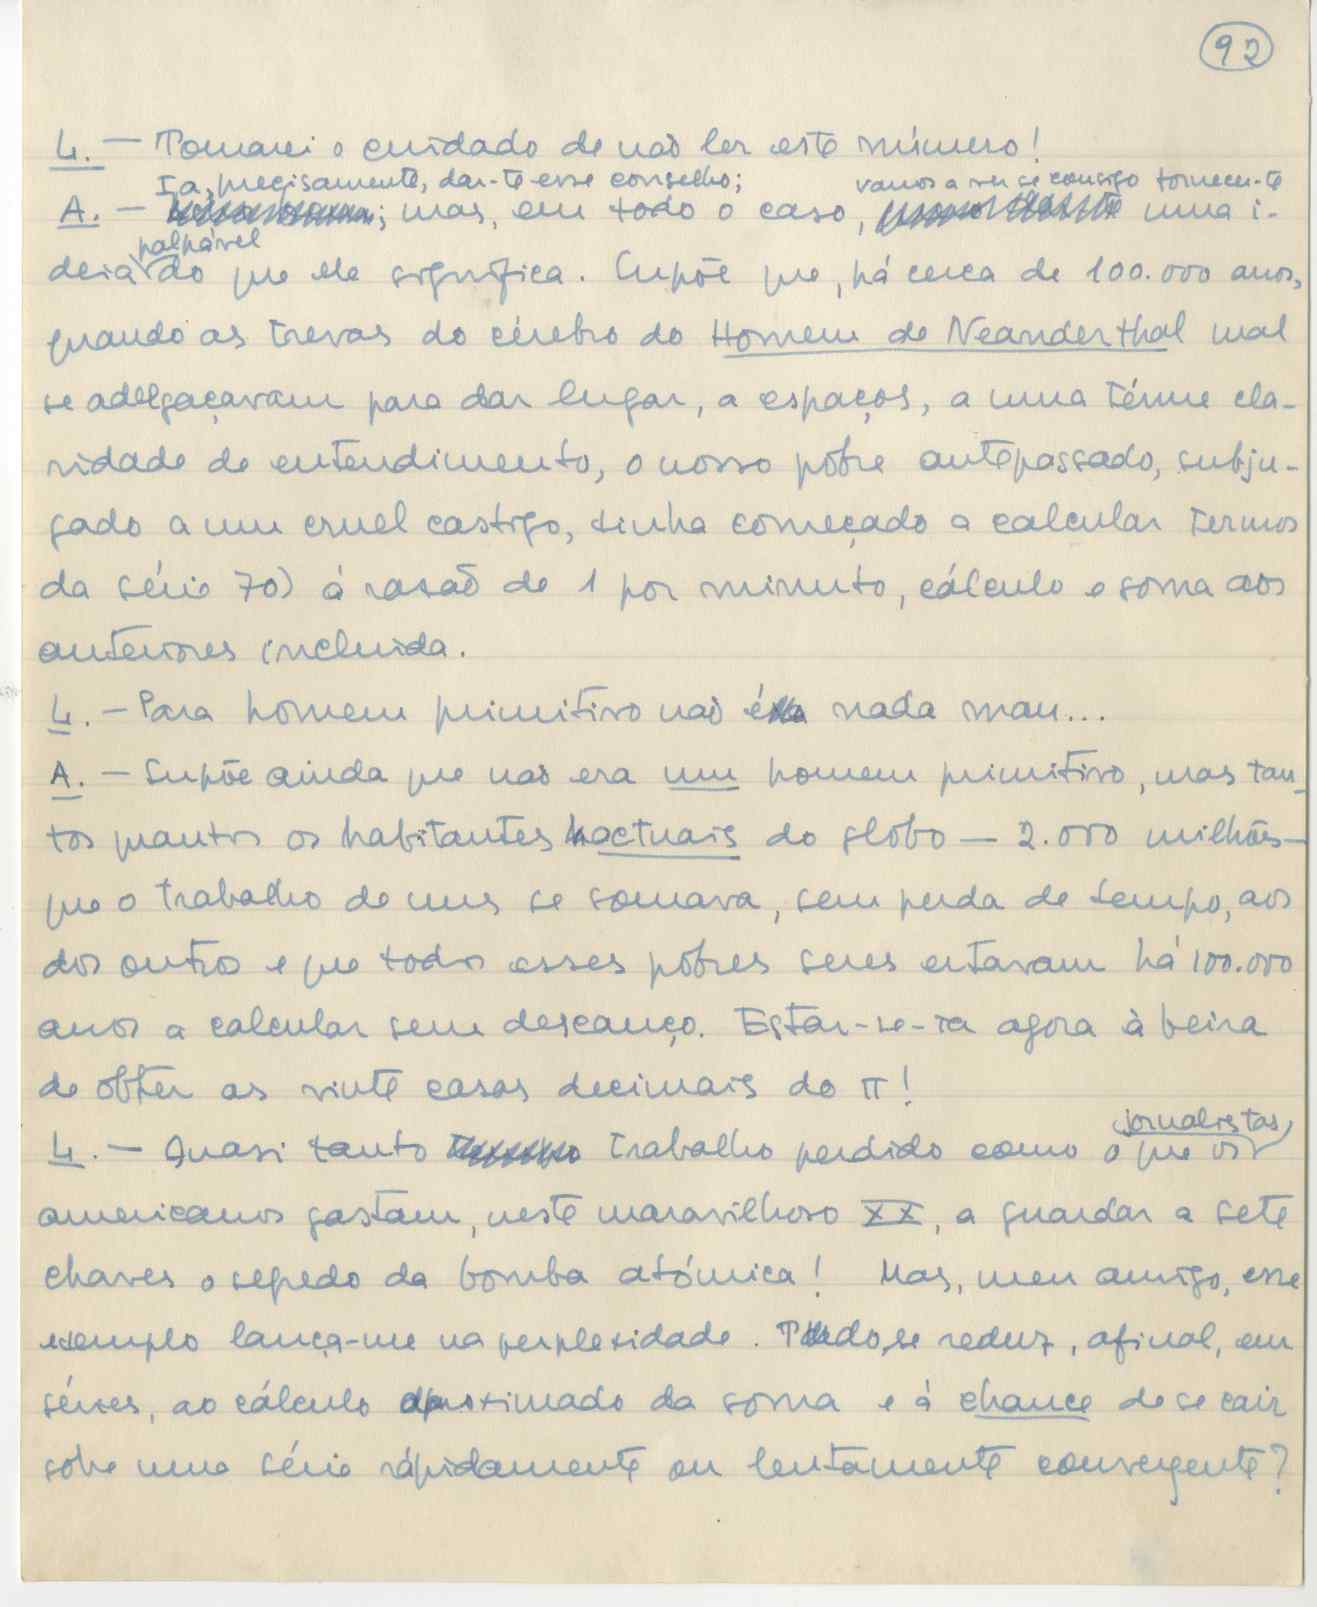 92
L. — Tomarei o cuidado de não ler este número!
Ia, precisamente, dar-te esse conselho; vamos a ver se consigo fornecer-te
A. — ; mas, em todo o caso, uma i-
palpável
deia do que ele significa. Supõe que, há cerca de 100.000 anos,
quando as trevas do cérebro do Homem de Neanderthal mal
se adelgaçavam para dar lugar, a espaços, a uma ténue cla-
ridade de entendimento, o nosso pôbre antepassado, subju-
gado a um cruel castigo, tinha começado a calcular termos
da série 70) á rasão de 1 por minuto, cálculo e soma aos
anteriores incluida.
L. — Para homem primitivo não é nada mau...
A. — Supõe ainda que não era um homem primitivo, mas tan-
tos quantos os habitantes actuais do globo — 2.000 milhões —
que o trabalho de uns se somava, sem perda de tempo, aos
dos outros e que todos esses pôbres seres estavam há 100.000
anos a calcular sem descanço. Estar-se-ia agora à beira
de obter as vinte casas decimais do π!
jornalistas
L. — Quasi tanto trabalho perdido como o que os
americanos gastam, neste maravilhoso XX, a guardar a sete
chaves o segredo da bomba atómica! Mas, meu amigo, esse
exemplo lança-me na perplexidade. Tudo se reduz, afinal, em
séries, ao cálculo aproximado da soma e á chance de se cair
sobre uma série rápidamente ou lentamente convergente?